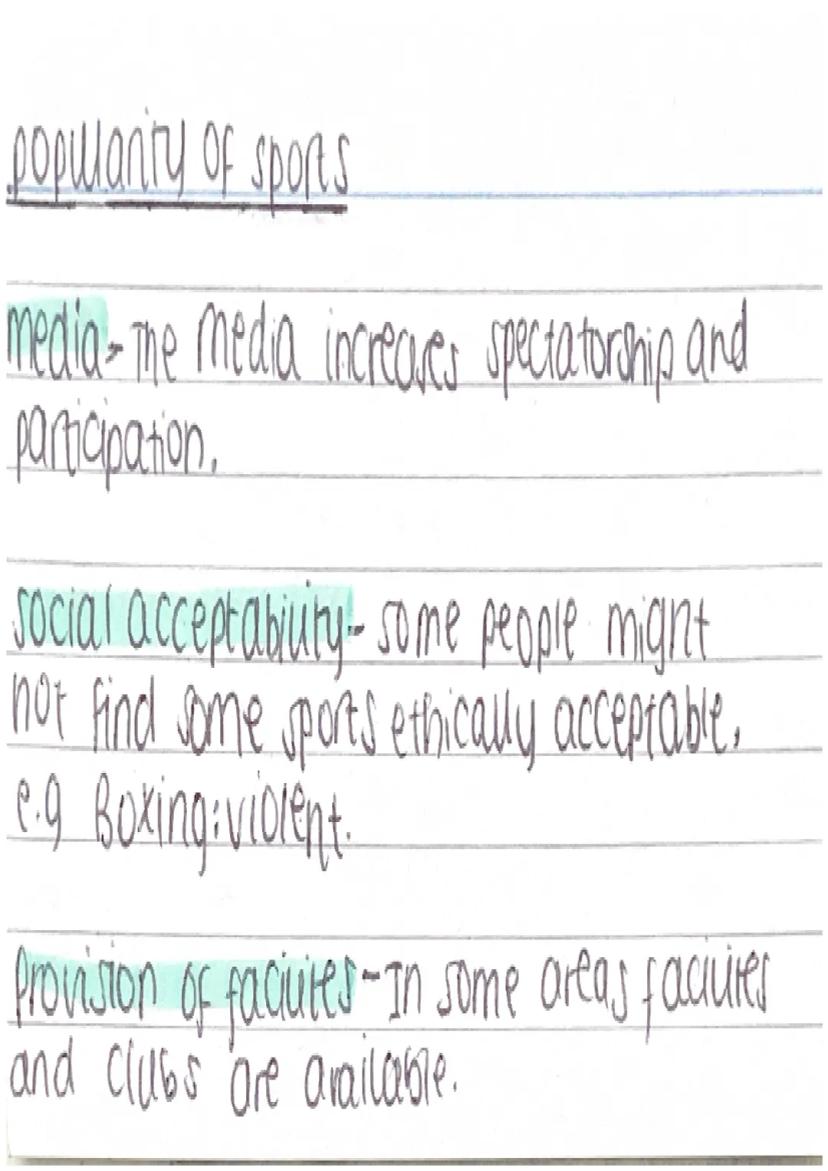 popularity of sports
media - The media increases spectatorship and
participation.
social acceptability - some people might
not find some sports ethically acceptable,
e.g Boxing: violent.
Provision of facilites - In some areas facilites
and clubs are available.